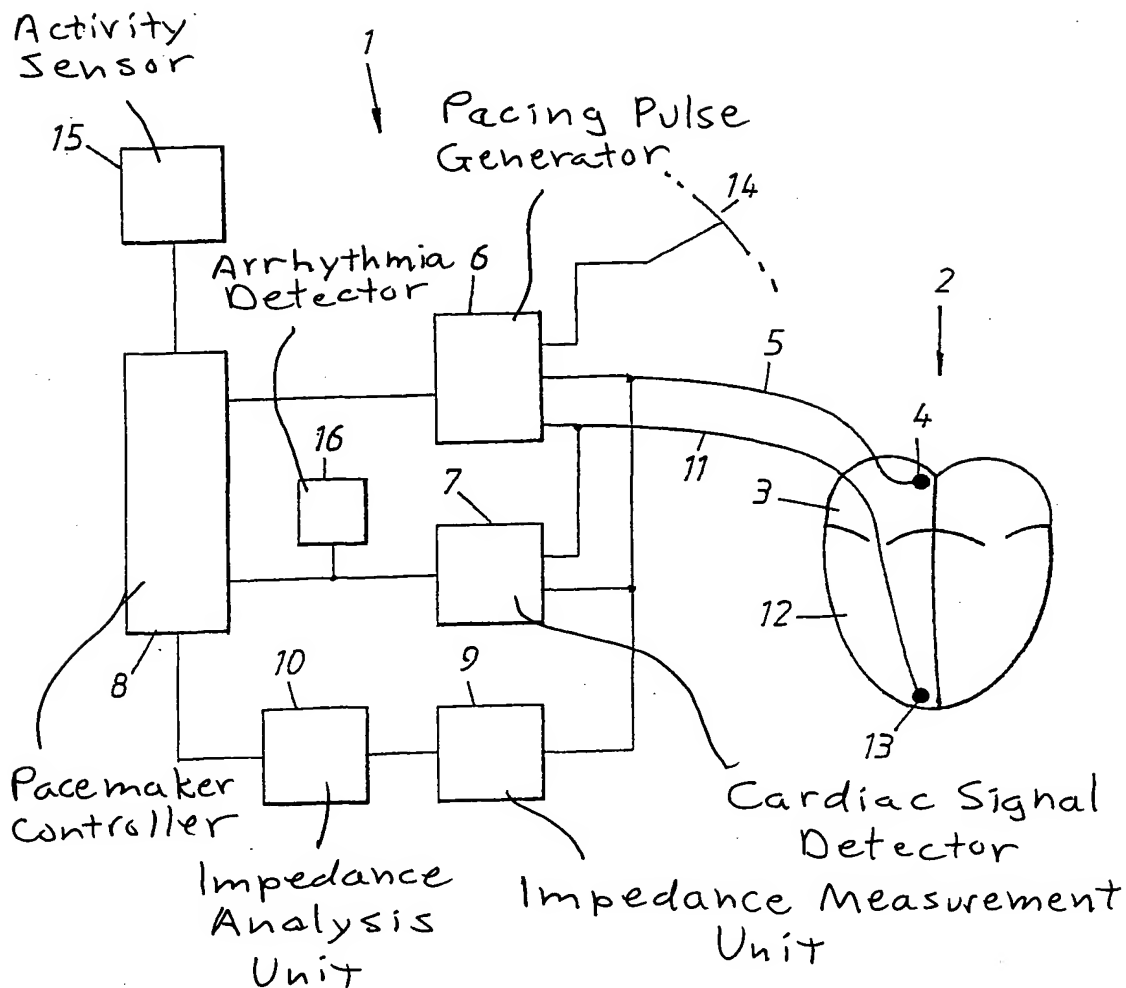 Activity
Sensor
1
Pacing Pulse
Generator
15
14
Arrhythmia
Detector
6
2
5
4
16
11
3
7
12
8
10
9
13
Pacemaker
Controller
Cardiac Signal
Detector
Impedance
Analysis
Unit
Impedance Measurement
Unit